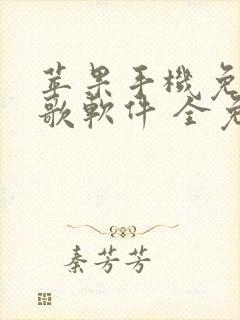 苹果手機免
歌軟件 全免
秦芳芳